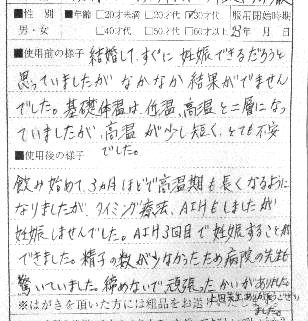 ■性 別 ■年齢 □20才未満 □20才代 ☑30才代 服用開始時期
男・女 □40才代 □50才代 □60才以上 23年 月 日
■使用前の様子 結婚して、すぐに妊娠できるだろうと
思っていましたが なかなか結果がでません
でした。基礎体温は、低温、高温と二層になっ
ていましたが、高温が少し短く、とても不安
でした。
■使用後の様子
飲み始めて、3ヵ月ほどで高温期も長くなるように
なりましたが、タイミング療法、AIHもしましたが
妊娠しませんでした。AIH3回目で妊娠することが
できました。精子の数が少なかったため病院の先生も
驚いていました。締めないで頑張ったかいがありました。
※はがきを頂いた方には粗品をお送り 上田先生ありがとうござい
ました。